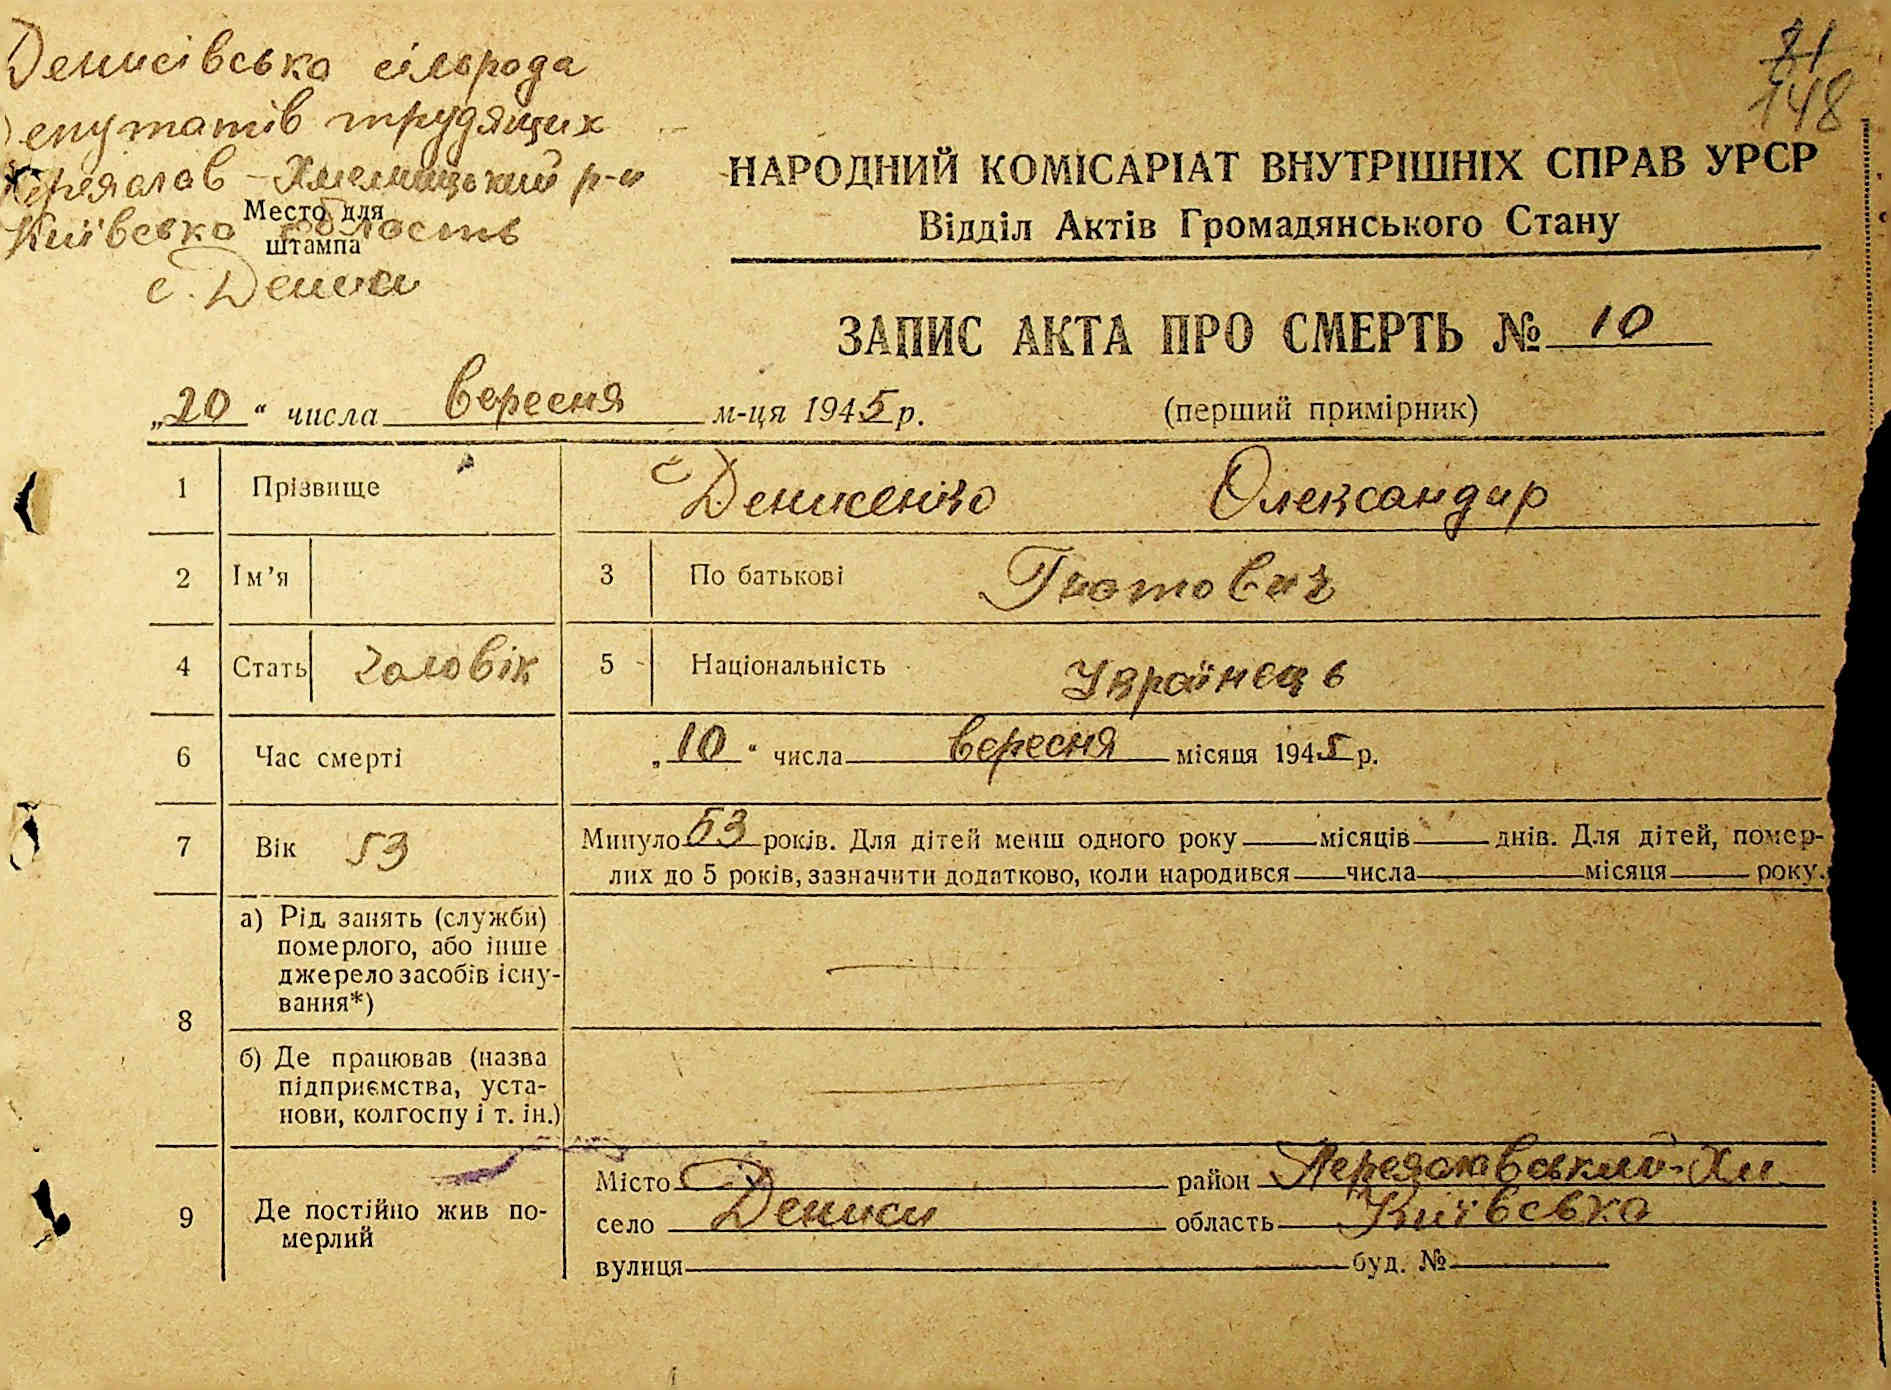 Денисівська сільрада
депутатів трудящих
Переяслав-Хмельницький р-н
Київська область
Место для
штампа
с. Дениси
21
148
НАРОДНИЙ КОМІСАРІАТ ВНУТРІШНІХ СПРАВ УРСР
Відділ Актів Громадянського Стану
ЗАПИС АКТА ПРО СМЕРТЬ № 10
„20“ числа вересня м-ця 1945 р. (перший примірник)
1 Прізвище Денисенко Олександр
2 Ім’я 3 По батькові
4 Стать Чоловік 5 Національність Українець
6 Час смерті „10“ числа вересня місяця 1945 р.
7 Вік 53 Минуло 53 років. Для дітей менш одного року — місяців — днів. Для дітей, помер-
лих до 5 років, зазначити додатково, коли народився — числа — місяця — року.
8 а) Рід занять (служби)
померлого, або інше
джерело засобів існу-
вання*)
б) Де працював (назва
підприємства, уста-
нови, колгоспу і т. ін.)
9 Де постійно жив по-
мерлий
Місто район Переяславський-Хм
село Дениси область Київська
вулиця буд. №